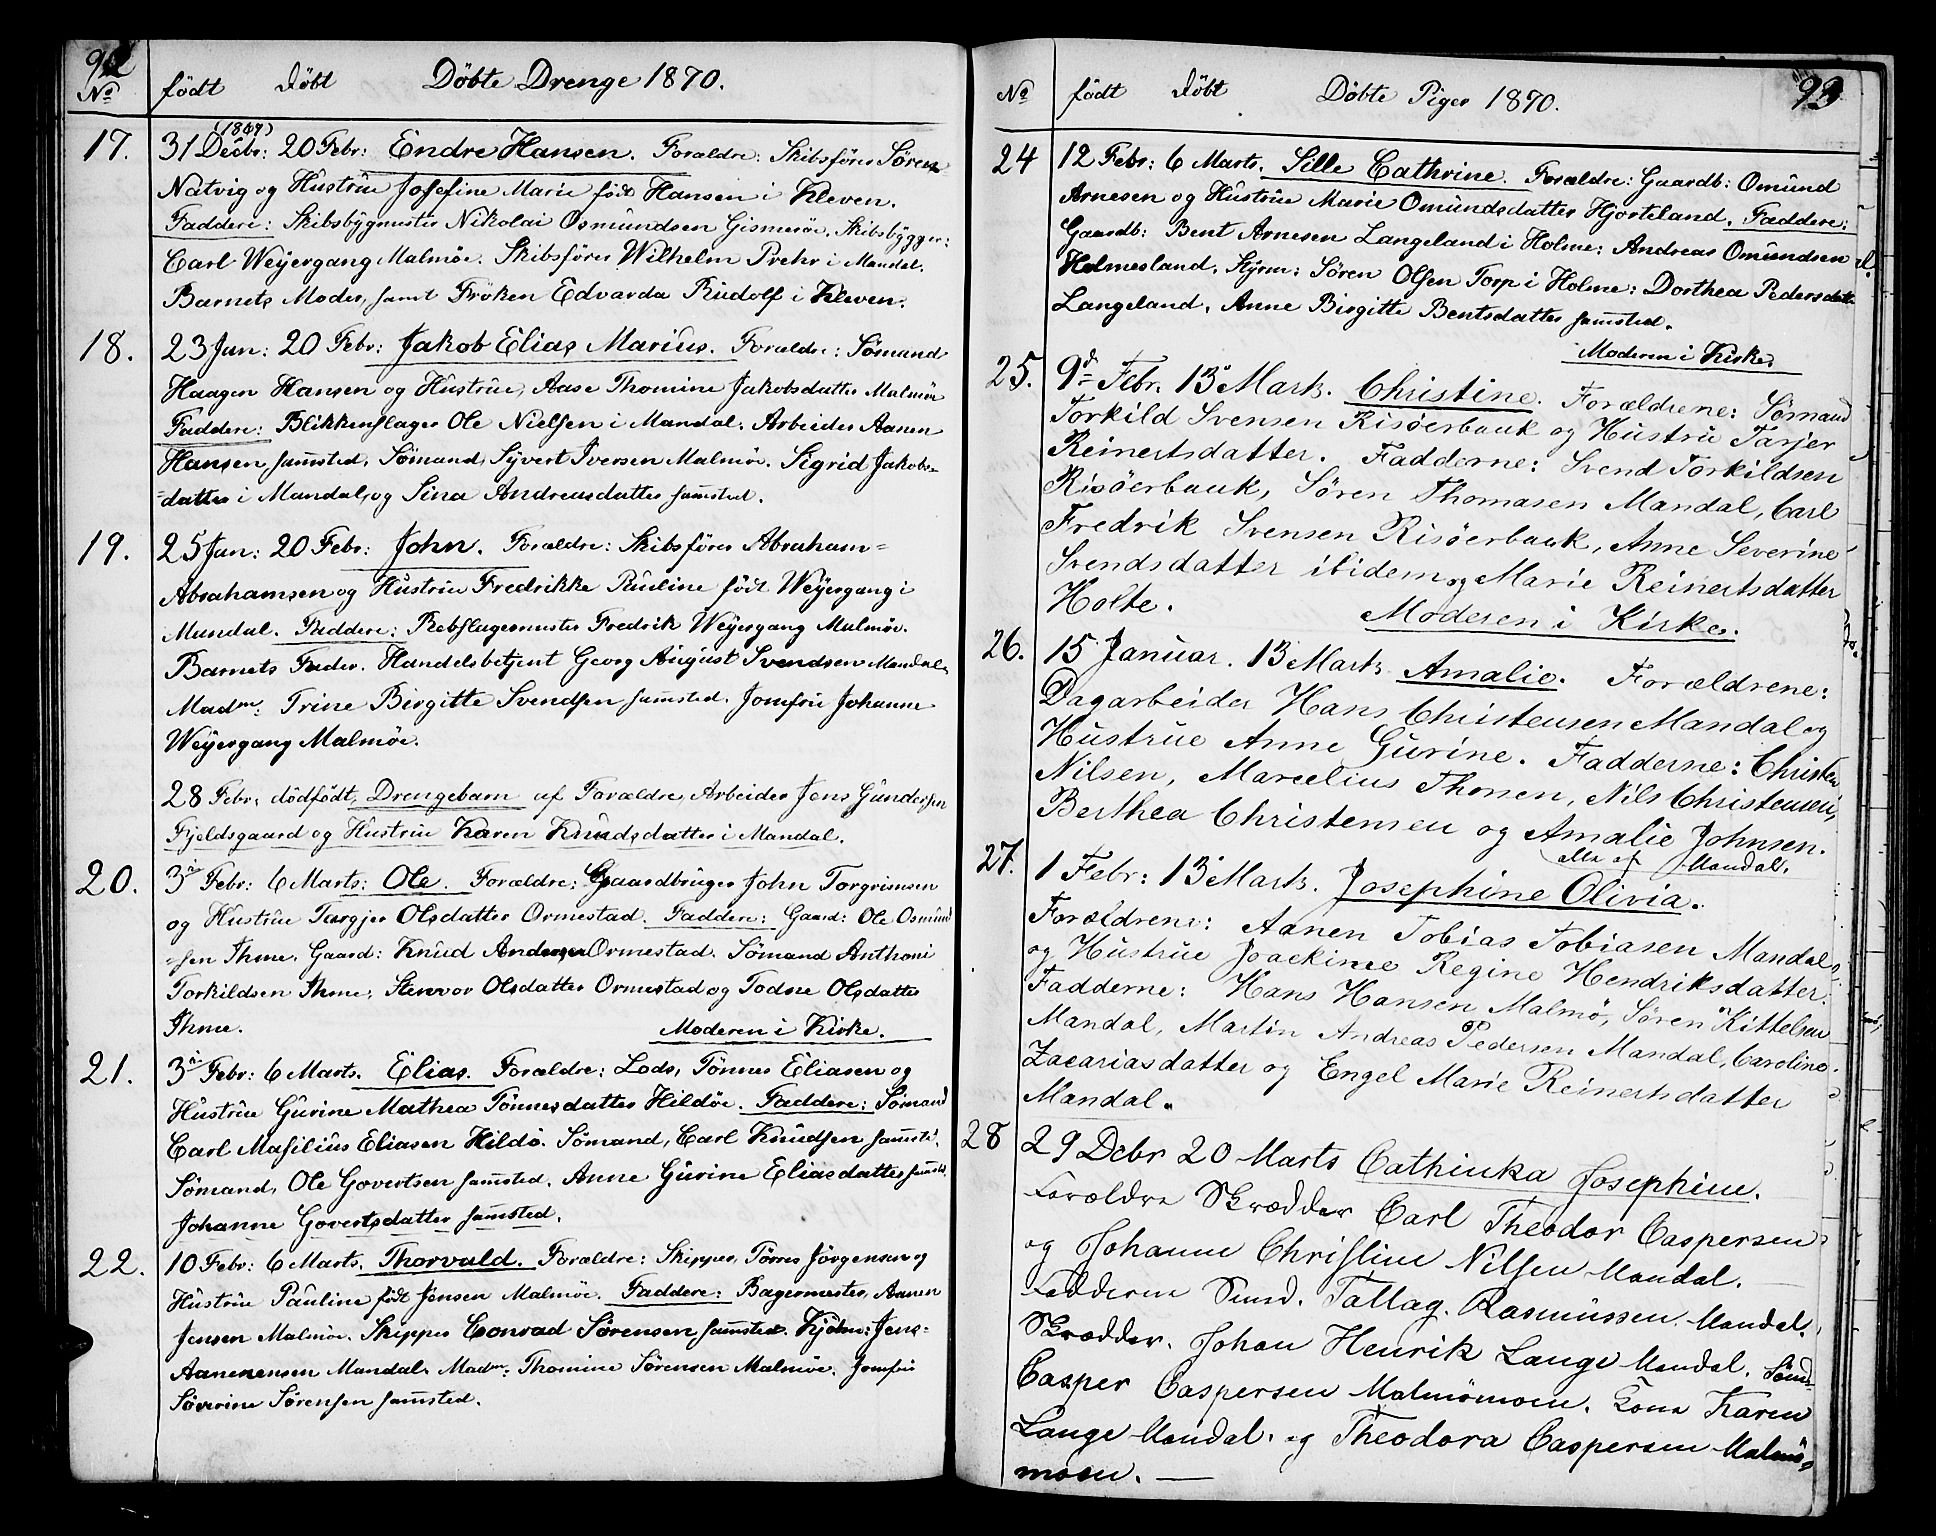 92
No
født døbt Döbte Drenge 1870.
17. 31 Decbr: (1869) 20 Febr: Endre Hansen. Forældre: Skibsförer Sören
Natvig og Hustrue Josefine Marie født Hansen i Kleven.
Faddere: Skibsbygmester Nikolai Osmundsen Gismeröe. Skibsbygger:
Carl Weyergang Malmöe. Skibsförer Wilhelm Prehr i Mandal.
Barnets Moder, samt Fröken Edvarda Rudolf i Kleven.
18. 23 Jan: 20 Febr: Jakob Elias Marius. Forældre: Sömand
Haagen Hansen og Hustrue, Aase Thomine Jakobsdatter Malmöe
Faddere: Blikkenslager Ole Nielsen i Mandal. Arbeider Aanen
Hansen, sammsted. Sömand, Syvert Iversen Malmöe. Sigrid Jakobs-
-datter i Mandal, og Sina Andreasdatter samsted.
19. 25 Jan: 20 Febr: John. Forældre: Skibsförer Abraham=
Abrahamsen og Hustrue Fredrikke Pauline født Weyergang i
Mandal. Faddere: Rebslagermester Fredrik Weyergang Malmöe.
Barnets Fader. Handelsbetjent Georg August Svendsen Mandal.
Madm: Trine Birgitte Svendsen samsted. Jomfrue Johanne
Weyergang Malmöe.
28 Febr: dödfödt, Drengebarn af Forældre, Arbeider Jens Gundersen
Fjeldsgaard og Hustrue Karen Knudsdatter i Mandal.
20. 3d Febr: 6 Marts: Ole. Forældre: Gaardbruger John Torgrimsen
og Hustrue Targjer Olsdatter Ormestad. Faddere: Gaard: Ole Osmund
-sen Ihme. Gaard: Knud Andersen Ormestad. Sömand Anthoni
Torkildsen Ihme, Stenvor Olsdatter Ormestad og Todne Olsdatter
Ihme. Moderen i Kirke.
21. 3d Febr: 6 Marts. Elias. Forældre: Lods, Tönnes Eliasen og
Hustrue Gurine Mathea Tönnesdatter Hildöe. Faddere: Sömand
Carl Masilius Eliasen Hildö. Sömand, Carl Knudsen samsted.
Sömand, Ole Govertsen samsted. Anne Gurine Eliasdatter samsted.
Johanne Govertsdatter samsted.
22. 10 Febr: 6 Marts. Thorvald. Forældre: Skipper, Törres Jörgensen og
Hustrue Pauline født Jensen Malmöe. Faddere: Bagermester, Aanen
Jensen Malmöe. Skipper Conrad Sörensen samsted. Kjöbm: Jens=
Aanensen Mandal. Madm: Thomine Sörensen Malmöe. Jomfru
Söverine Sörensen samsted.
93
No født døbt Döbte Piger 1870.
24 12 Febr: 6 Marts. Sille Cathrine. Forældre: Gaardb: Omund
Arnesen og Hustrue Marie Omundsdatter Hjorteland. Faddere:
Gaardb: Bent Arnesen Langeland i Holme: Andreas Omundsen
Holmesland. Styrm: Sören Olsen Torp i Holme: Dorthea Pedersdatt
Langeland. Anne Birgitte Bentsdatter samsted.
Moderen i Kirke.
25. 9d Febr. 13 Marts. Christine. Forældrene: Sömand
Torkild Svensen Risöerbank og Hustru Tarjer
Reinertsdatter. Fadderne: Svend Torkildsen
Risöerbank, Sören Thomasen Mandal, Carl
Fredrik Svensen Risöerbank, Anne Severine
Svendsdatter ibidem og Marie Reinertsdatter
Holte. Moderen i Kirke.
26. 15 Januar. 13 Marts. Amalie. Forældrene:
Dagarbeider Hans Christensen Mandal og
Hustrue Anne Gurine. Fadderne: Christen
Nilsen, Marcelius Thonen, Nils Christensen,
Berthea Christensen og Amalie Johnsen.
alle af Mandal.
27. 1 Febr: 13 Marts. Josephine Olivia.
Forældrene: Aanen Tobias Tobiasen Mandal
og Hustrue Joackime Regine Hendriksdatter.
Fadderne: Hans Hansen Malmö, Sören Kittelsen
Mandal, Martin Andreas Pedersen Mandal, Caroline
Zacariasdatter og Engel Marie Reinertsdatter
Mandal.
28 29 Debr 20 Marts Cathinka Josephine.
Forældre Skrædder Carl Theodor Caspersen
og Johanne Christine Nilsen Mandal.
Fadderne Tallag. Rasmussen. Mandal.
Skrædder. Johan Henrik Lange Mandal. Sömd
Casper Caspersen Malmömoen. Kona Karen
Lange Mandal. og Theodora Caspersen Malmö=
moen.